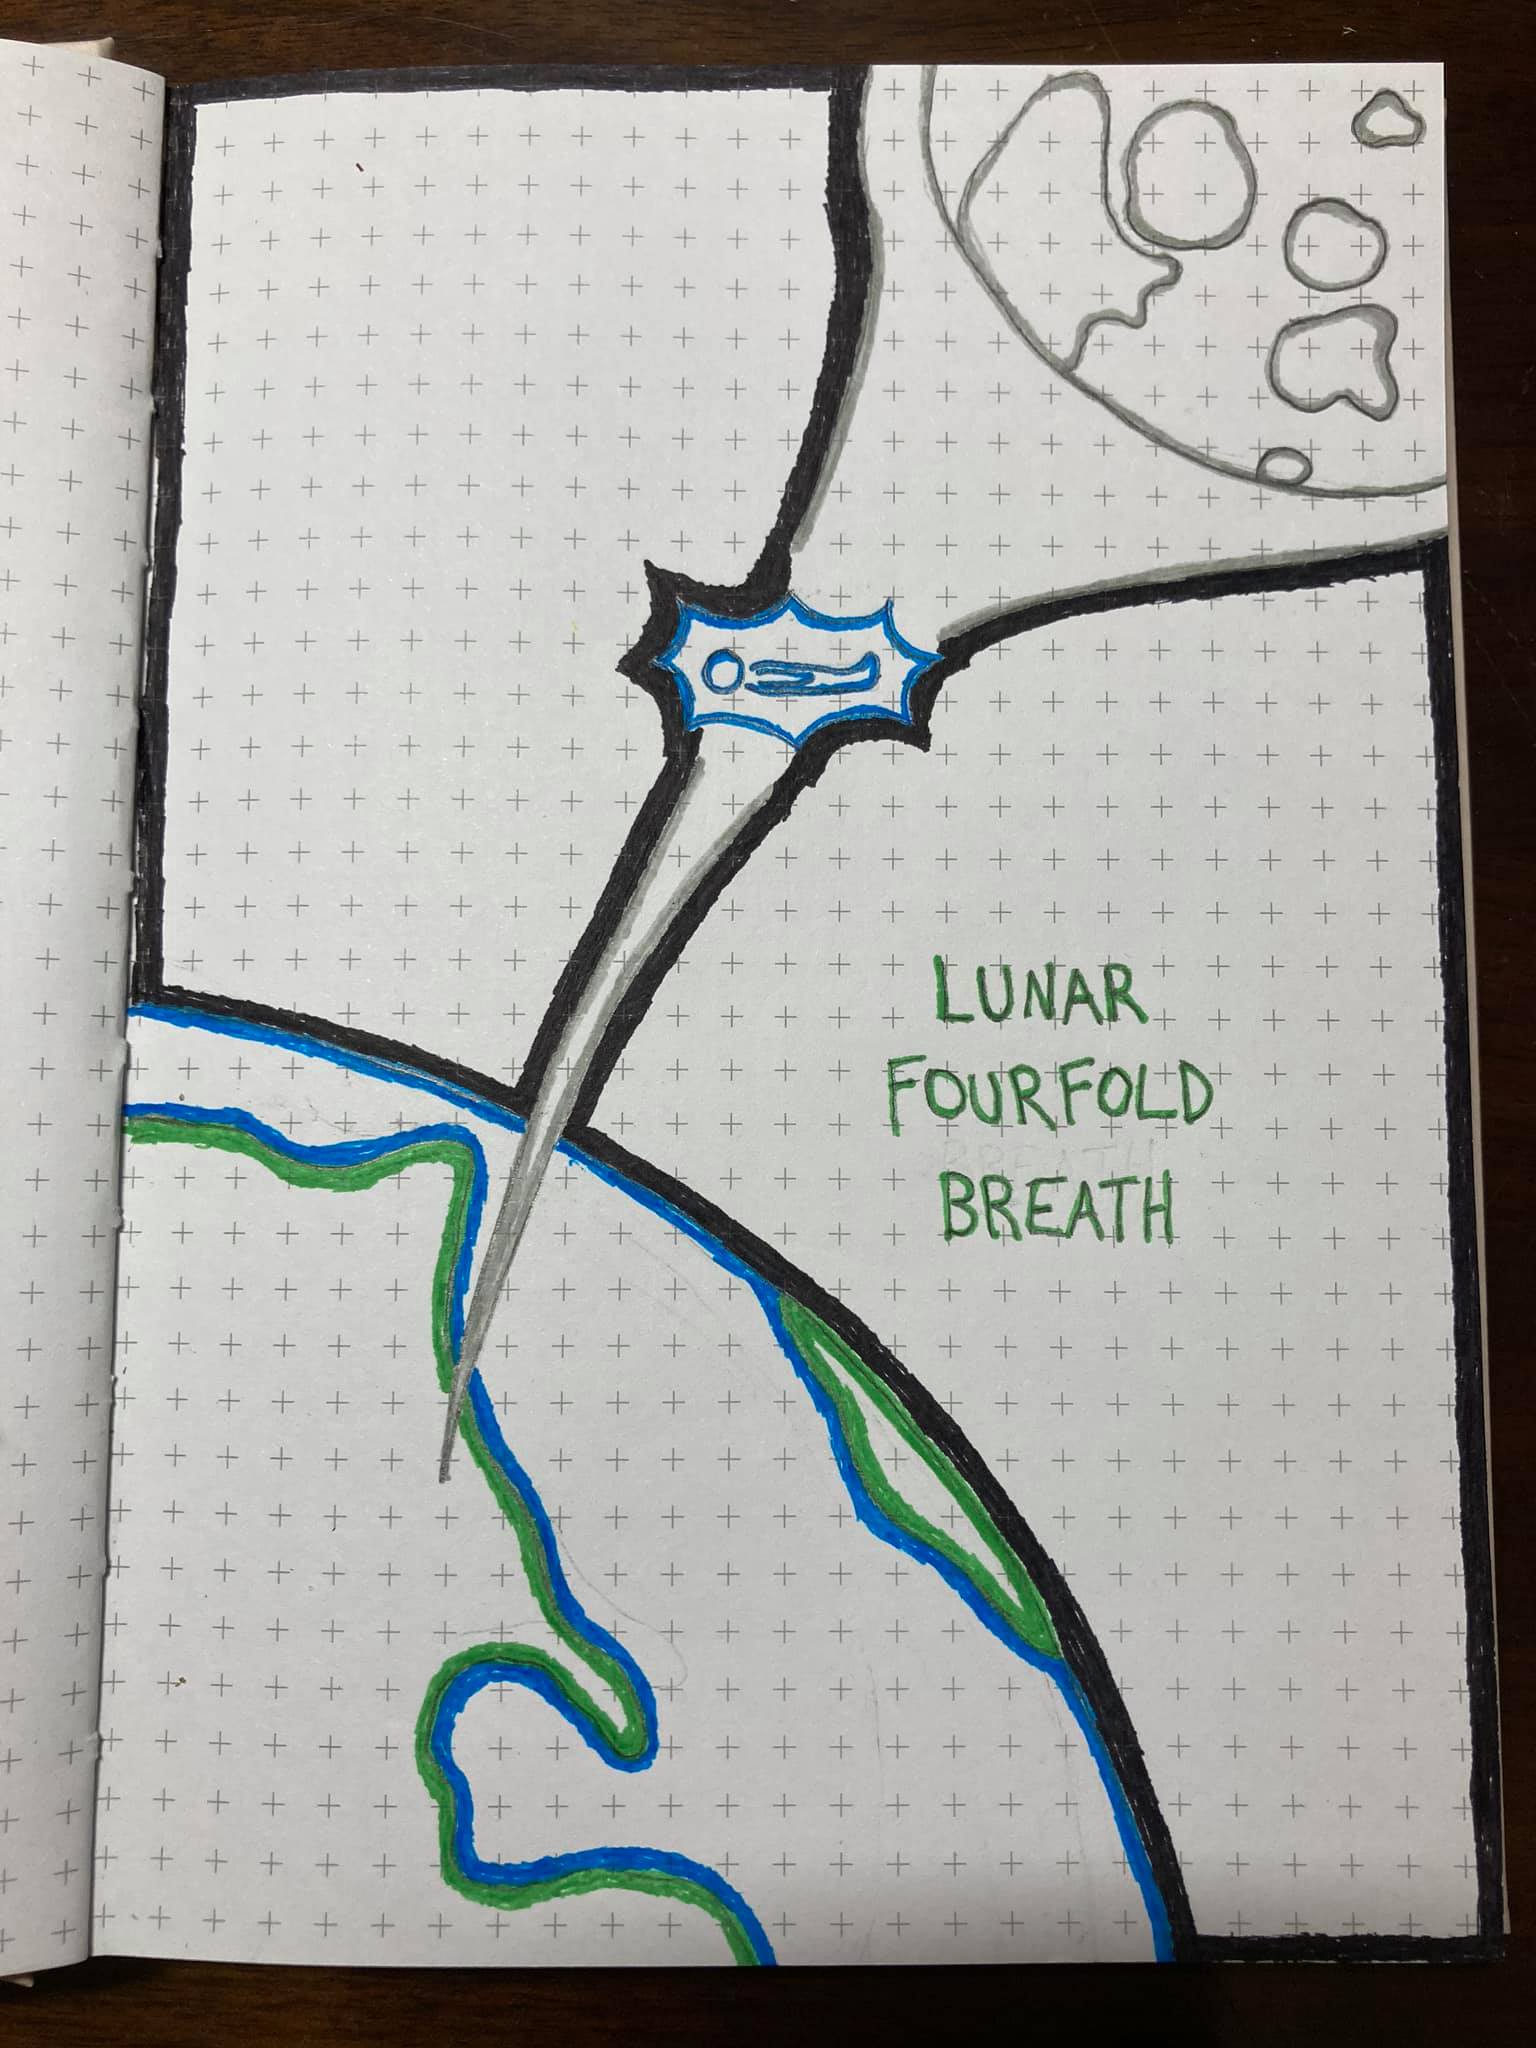 LUNAR
FOURFOLD
BREATH